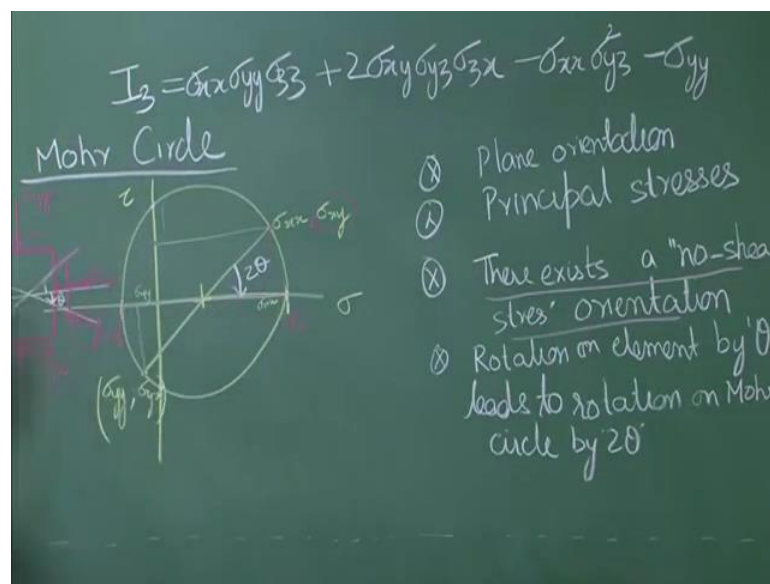 I₃ = σxx σyy σzz + 2σxy σyz σzx − σxx σyz² − σyy
Mohr Circle
τ
σxx, σxy
2θ
σyy
σ
θ
(σyy, σyx)
Ⓧ Plane orientation
Ⓧ Principal stresses
Ⓧ There exists a "no-shea
stres' orientation
Ⓧ Rotation on element by 'θ
leads to rotation on Mohr
circle by '2θ'